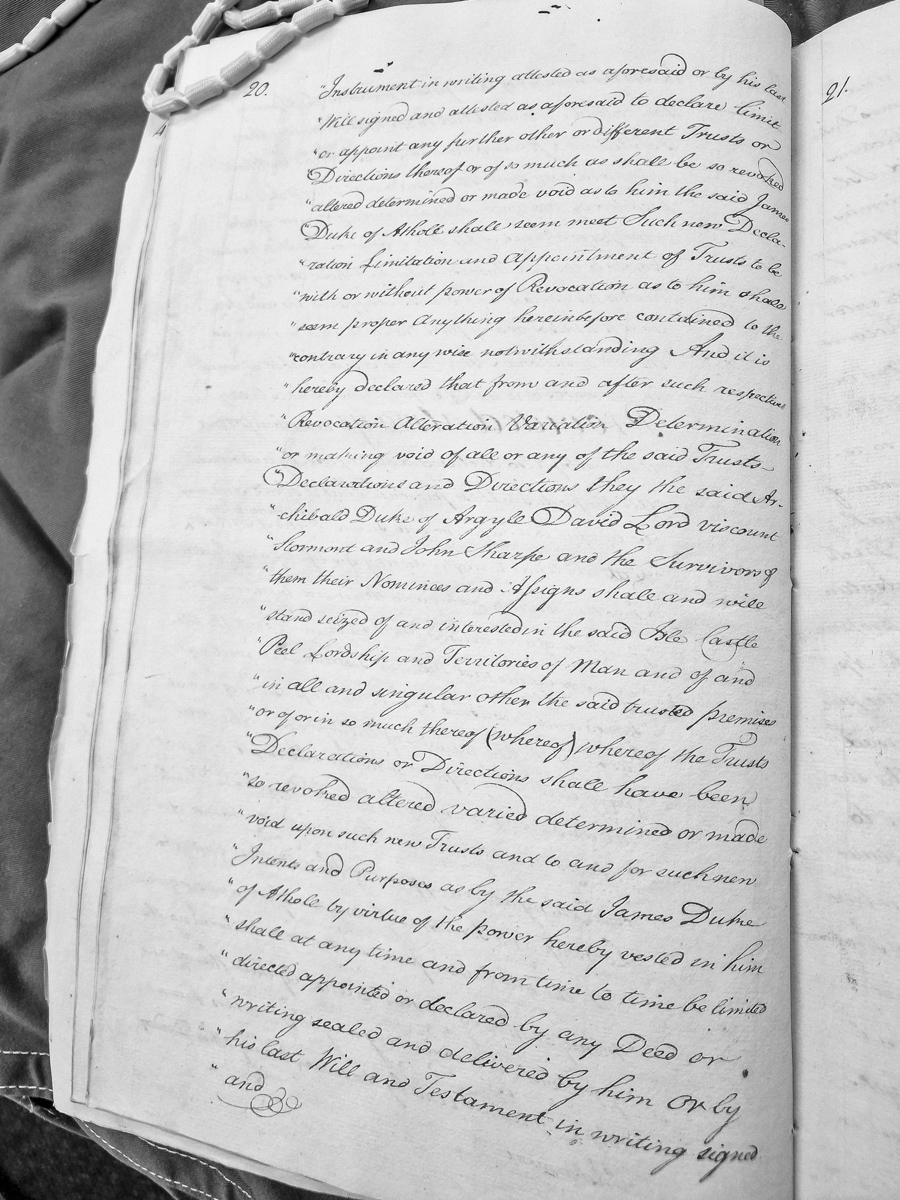 20.
"Instrument in writing attested as aforesaid or by his last
"Will signed and attested as aforesaid to declare limit
"or appoint any further other or different Trusts or
"Directions thereof or of so much as shall be so revoked
"altered determined or made void as to him the said James
"Duke of Atholl shall seem meet Such new Decla-
"ration Limitation and Appointment of Trusts to be
"with or without power of Revocation as to him shall
"seem proper Anything hereinbefore contained to the
"contrary in any wise notwithstanding And it is
"hereby declared that from and after such respective
"Revocation Alteration Variation Determination
"or making void of all or any of the said Trusts
"Declarations and Directions they the said Ar-
"chibald Duke of Argyle David Lord viscount
"Stormont and John Sharpe and the Survivors of
"them their Nominees and Assigns shall and will
"stand seized of and interested in the said Isle Castle
"Peel Lordship and Territories of Man and of and
"in all and singular other the said trusted premises
"or of or in so much thereof (whereof) whereof the Trusts
"Declarations or Directions shall have been
"so revoked altered varied determined or made
"void upon such new Trusts and to and for such new
"Intents and Purposes as by the said James Duke
"of Atholl by virtue of the power hereby vested in him
"shall at any time and from time to time be limited
"directed appointed or declared by any Deed or
"writing sealed and delivered by him or by
"his last Will and Testament in writing signed
"and
21.